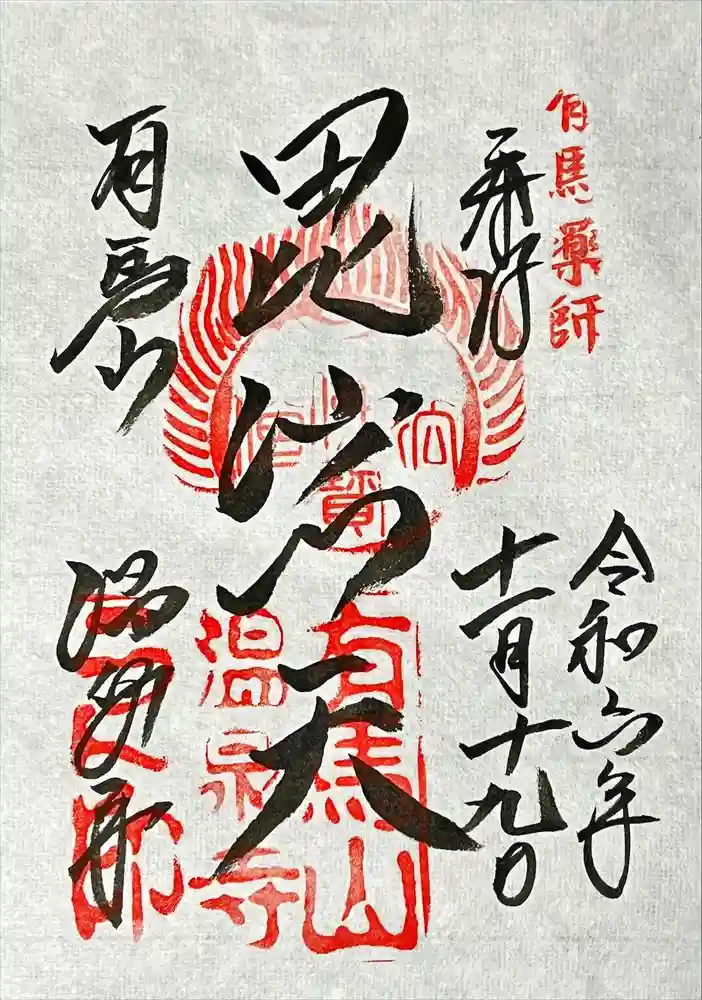 有馬薬師
奉拝
令和六年
十一月十九日
毘沙門天
有馬山
温泉寺
有馬山
温泉寺